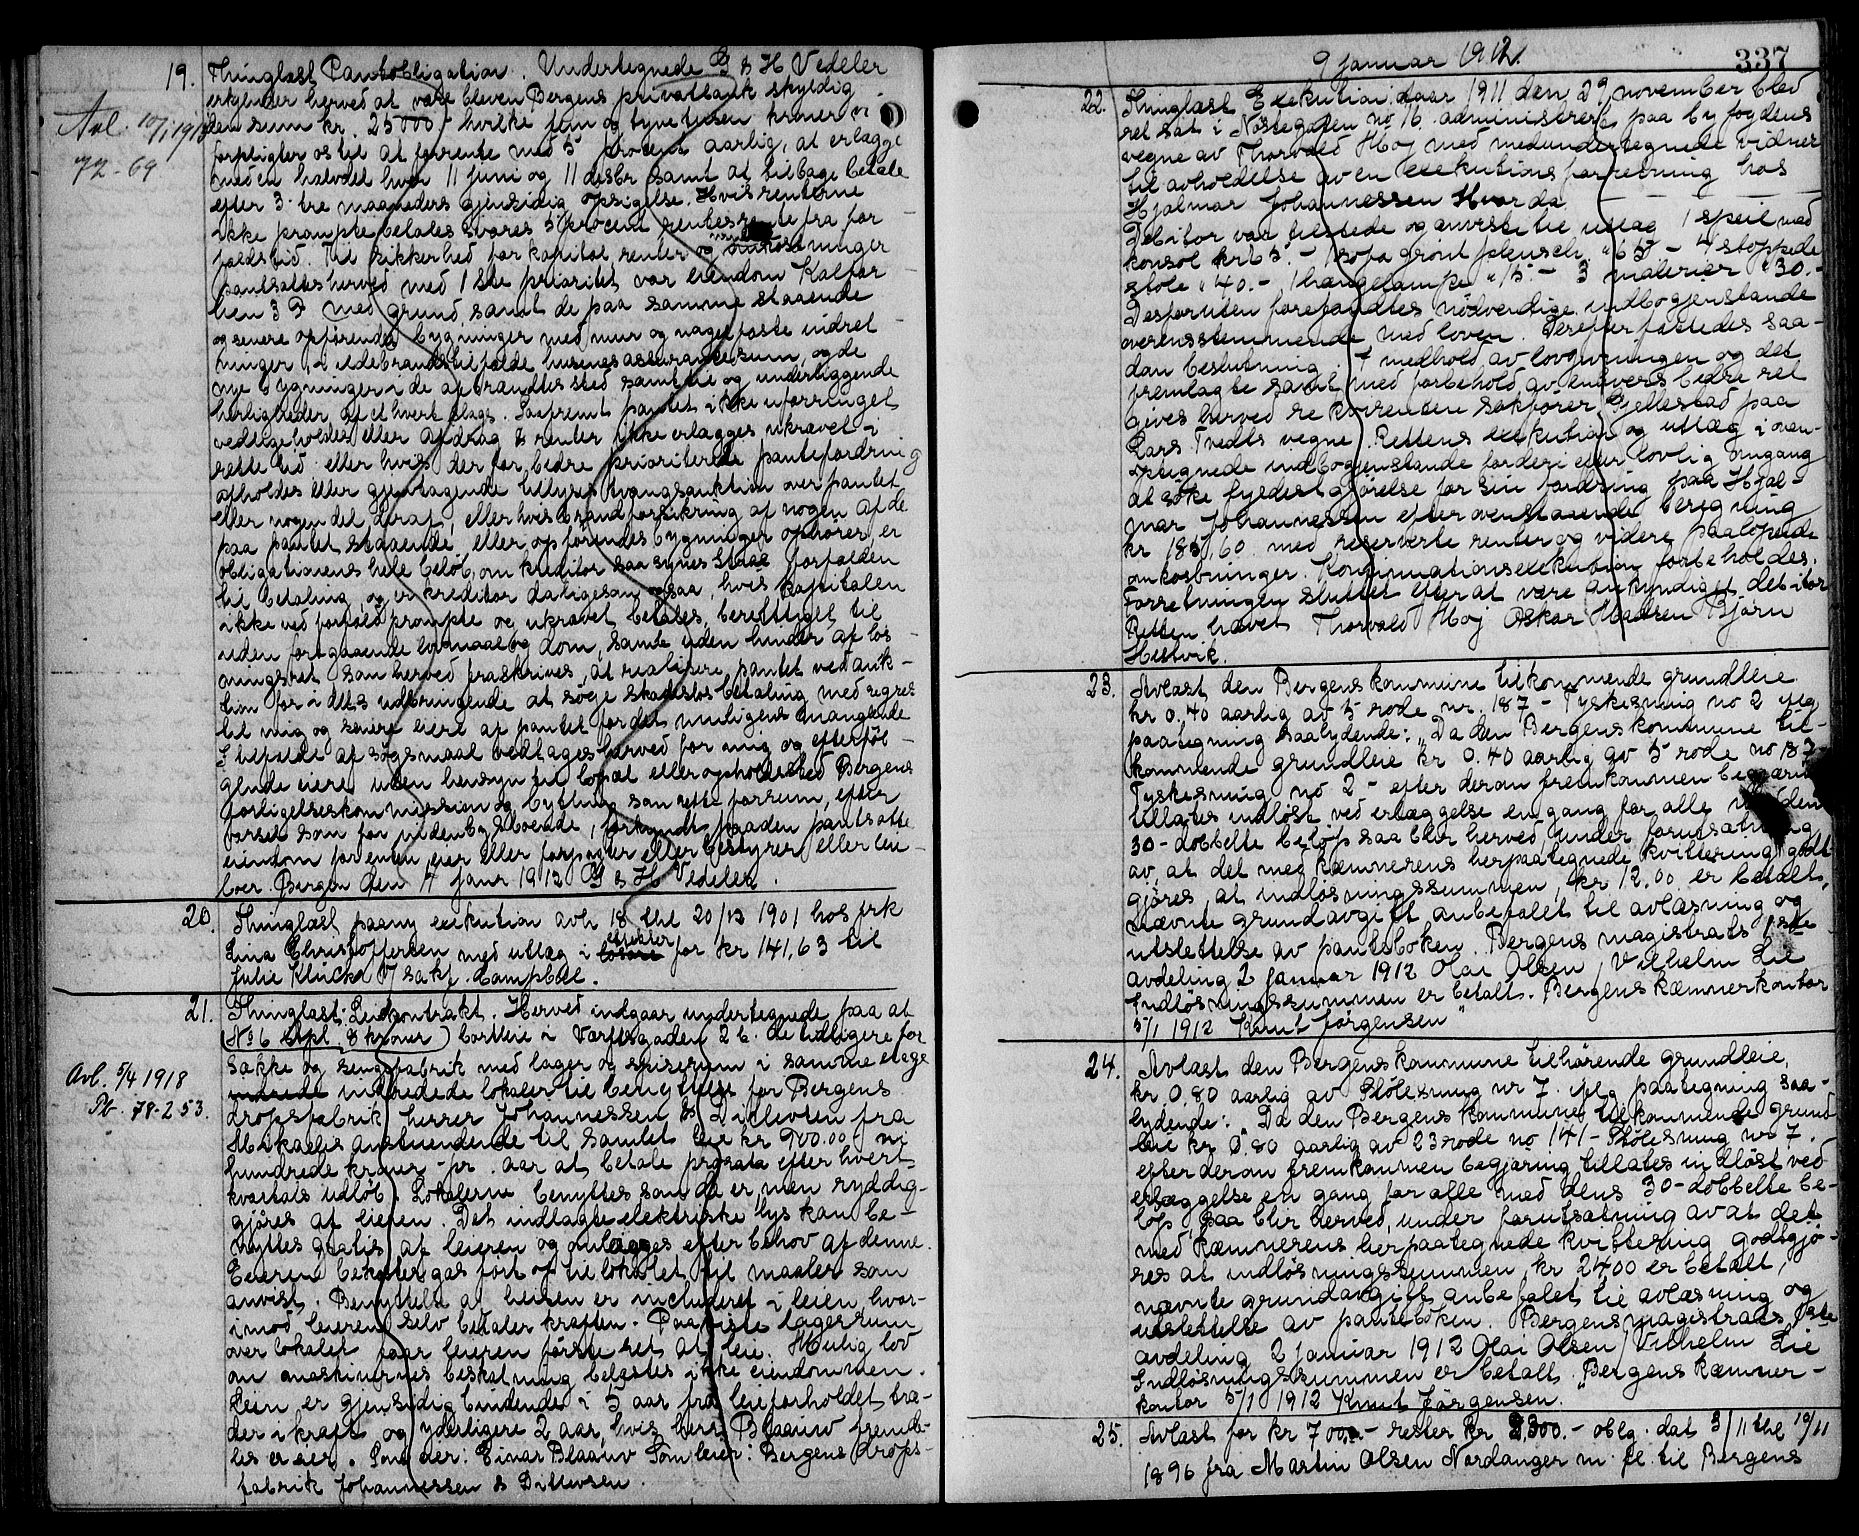 19. Thinglæst Pantobligation. Undertegnede G & H Vedeler
erkjender herved at være bleven Bergens privatbank skyldig
Avl. 10/1 1913
72-69
den sum kr. 25000 - hvilke fem og tyvetusen kroner vi
forpligter os til at forrente med 5 procent aarlig, at erlægge
med en halvdel hver 11 juni og 11 desbr samt at tilbage betale
efter 3 - tre maaneders gjensidig opsigelse. Hvis renterne
ikke prompte betales svares 5 procent rentesrente fra for
faldstid. Til sikkerhed for kapital, renter og inkass omkostninger
pantsættes herved med 1ste prioritet vor eiendom Kalfar
vien 3 F med grund, samt de paa samme staaende
og senere opførendes bygninger med mur og nagelfaste indret
ninger, i ildebrandstilfælde husenes assurancesum, og de
nye bygninger i de afbrændtes sted samt til og underliggende
herligheder af et hvert slags. Saafremt pantet ikke uforringet
vedligeholdes eller afdrag & renter ikke erlægges ukrævet i
rette tid eller hvis der for bedre prioriterede pantefordring
afholdes eller gjentagende tillyses tvangsauktion over pantet
eller nogen del deraf, eller hvis brandforsikring af nogen af de
paa pantet staaende eller opførendes bygninger ophører, er
obligationens hele beløb, om kreditor saa synes straks forfalden
til betaling, og er kreditor da ligesom ogsaa, hvis kapitalen
ikke ved forfald prompte og ukrævet betales, berettiget til
uden foregaaende lovmaal og dom, samt uden hinder af løs
ningsret som herved fraskrives, at realisere pantet ved auk-
tion for i dets udbringende at søge skadesløs betaling med regres
til mig og senere eiere af pantet for det muligens manglende
I tilfælde af søgsmaal vedtages herved for mig og efterføl-
gende eiere uden hensyn til bopæl eller opholdssted Bergens
forligelseskommission og byting som rette forum, efter
varsel som for indenbys boende, forkyndt paa den pantsatte
eiendom for enten eier eller forpagter eller bestyrer eller lei-
boer. Bergen den 4 janr 1912 G & H Vedeler.
20. Thinglæst paany exekution avh 18 thl 20/12 1901 hos frk
Lina Christoffersen med utlæg i effekter for kr 141,63 til
Julie Klücke v/ sakf. Campbell.
21. Thinglæst Leiekontrakt. Herved indgaar undertegnede paa at
(No 6 stpl 8 kroner) bortleie i Værftsgaden 2 b. de tidligere for
Avl. 5/4 1918
Pb. 78-253.
sække og sengefabrik med lager og spiserum i samme etage
indredede lokaler til benyttelse for Bergens
dropsfabrik herrer Johannessen & Ditlevsen fra
Mikaelis anstundende til samlet leie kr 900.00 ni
hundrede kroner pr. aar at betale prorata efter hvert
kvartals udløb. Lokalerne benyttes som de er, men ryddig-
gjøres af leieren. Det indlagte elektriske lys kan be-
nyttes gratis af leieren og omlægges efter behov af denne.
Eieren bekoster gas ført op til lokalet til maaler som
anvist. Benyttelse af heisen er includeret i leien, hvor-
imod leieren selv betaler kraften. Paa viste lagerrum
over lokalet faar leieren første ret at leie. Mulig lov
om maskinernes beskatning belastes ikke eiendommen.
Leien er gjensidig bindende i 5 aar fra leieforholdet træ-
der i kraft og yderligere 2 aar, hvis herr Blaauw fremde-
les er eier. Som eier: Einar Blaauw Som leier: Bergens drops-
fabrik Johannessen & Ditlevsen.
9 januar 1912.
337
22. Thinglæst Exekution: Aar 1911 den 29 november blev
ret sat i Nøstegaten no 16 administrert paa byfogdens
vegne av Thorvald Høj med medundertegnede vidner
til avholdelse av en exekutionsforretning hos
Hjalmar Johannessen Hvarda
Debitor var tilstede og anviste til utlæg 1 speil med
konsol kr 65.- 1 sofa grønt plensch " 65 - 4 stoppede
stole " 40.-, 1 hængelampe " 15.- 3 malerier " 30.-
Desforuten forefandtes nødvendige indbogjenstande
overensstemmende med loven. Derefter fattedes saa-
dan beslutning: I medhold av lovgivningen og det
fremlagte samt med forbehold av enhvers bedre ret
gives herved rekvirenten sakfører Gjellestad paa
Lars Tvedts vegne Rettens exekution og utlæg i oven-
optegnede indbogjenstande for deri efter lovlig omgang
at søke fyldestgjørelse for sin fordring paa Hjal-
mar Johannessen efter ovenstaaende beregning
kr 185,60 med reserverte renter og videre paaløpende
omkostninger. Kontinuationsexekution forbeholdes.
Forretningen sluttet efter at være ankyndiget debitor
Retten hævet Thorvald Høj Oskar Madsen Bjørn
Hestvik.
23. Avlæst den Bergens kommune tilkommende grundleie
kr 0,40 aarlig av 5 rode nr. 187 - Tyskesmug no 2 iflg.
paategning saalydende: "Da den Bergens kommune til-
kommende grundleie kr 0.40 aarlig av 5 rode no 187
Tyskesmug no 2 - efter derom fremkommen begjæring
tillates indløst ved erlæggelse en gang for alle med den
30-dobbelte beløp saa blir herved, under forutsætning
av, at det med Kæmnerens herpaategnede kvittering godt
gjøres, at indløsningssummen, kr 12.00 er betalt,
nævnte grundavgift anbefalet til avlæsning og
utslettelse av panteboken. Bergens magistrats 1ste
avdeling 2 januar 1912 Olai Olsen / Vilhelm Lie
Indløsningssummen er betalt. Bergens kæmnerkontor
5/1 1912 Knut Jørgensen"
24. Avlæst den Bergens kommune tilhørende grundleie,
kr 0,80 aarlig av Stølesmug nr 7. iflg. paategning saa-
lydende: "Da den Bergens kommune tilkommende grund
leie kr 0.80 aarlig av 23 rode no 141 - Stølesmug nr 7.
efter derom fremkommen begjæring tillates indløst ved
erlæggelse en gang for alle med dens 30-dobbelte be-
løp saa blir herved, under forutsætning av at det
med Kæmnerens herpaategnede kvittering godtgjø-
res at indløsningssummen, kr 24.00 er betalt,
nævnte grundavgift anbefalet til avlæsning og
utslettelse av panteboken. Bergens magistrats 1ste
avdeling 2 januar 1912 Olai Olsen / Vilhelm Lie
Indløsningssummen er betalt. "Bergens Kæmner-
kontor 5/1 1912 Knut Jørgensen.
25. Avlæst for kr 7000.- rester kr 2,300.- oblg. dat 3/11 thl 19/11
1896 fra Martin Olsen Nordanger m. fl. til Bergens